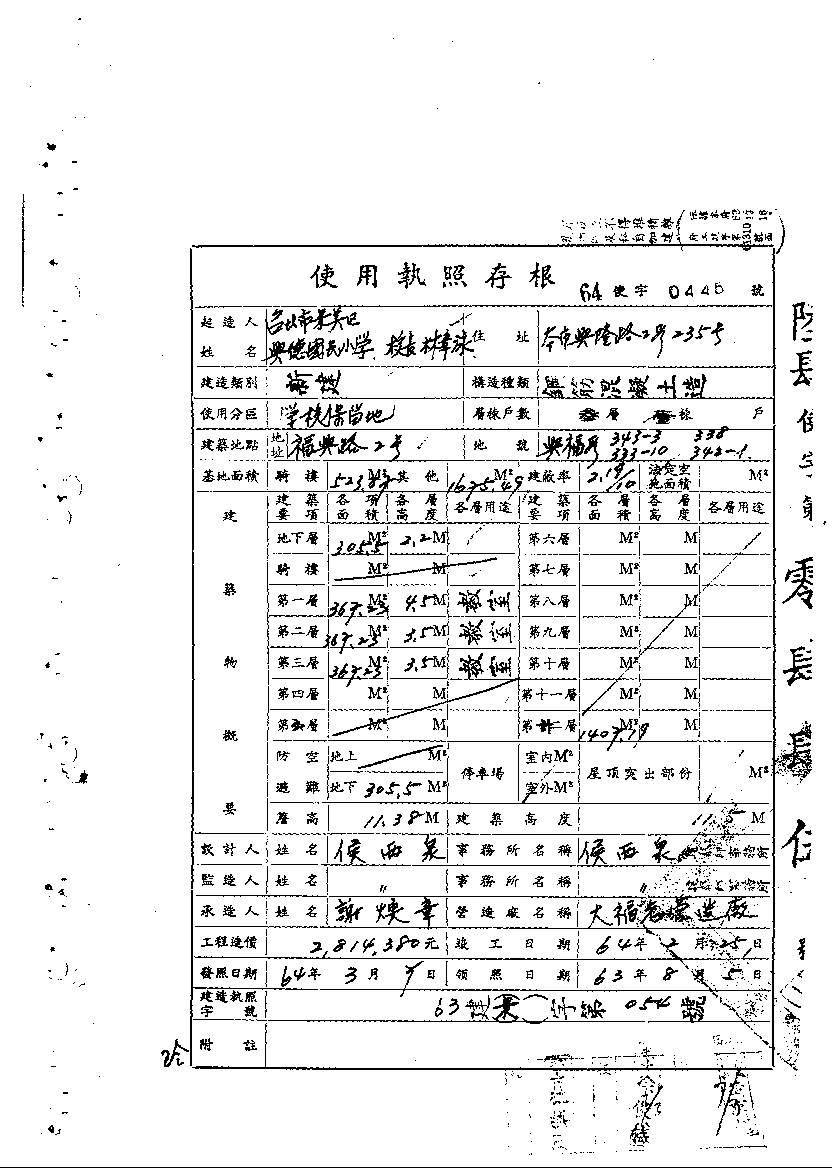 使用執照存根
64 使字 0445 號
起造人 台北市景美區
姓名 興德國民小学 校長林幸珠 住址 本市興隆路2号235号
建造類別 新建 構造種類 鋼筋混凝土造
使用分區 学校保留地 層棟戶數 層 棟 戶
建築地點 地址 福興路2号 地號 興福段 343-3 338 333-10 342-1
基地面積 騎樓 523.87 M² 其他 1675.49 M² 建蔽率 2.19/10 法定空地面積 M²
建築物概要
建築要項 各項面積 各層高度 各層用途 建築要項 各層面積 各層高度 各層用途
地下層 305.5 M² 2.2 M 第六層 M² M
騎樓 M² M 第七層 M² M
第一層 367.23 M² 4.5 M 教室 第八層 M² M
第二層 367.23 M² 3.5 M 教室 第九層 M² M
第三層 367.23 M² 3.5 M 教室 第十層 M² M
第四層 M² M 第十一層 M² M
第五層 M² M 第十二層 1407.19 M² M
防空避難 地上 M² 停車場 室內 M² 屋頂突出部份 M²
地下 305.5 M² 室外 M²
簷高 11.38 M 建築高度 11.5 M
設計人 姓名 侯西泉 事務所名稱 侯西泉
監造人 姓名 〃 事務所名稱 〃
承造人 姓名 謝煥章 營造廠名稱 大福營造廠
工程造價 2,814,380元 竣工日期 64年2月25日
發照日期 64年3月 日 領照日期 63年8月5日
建造執照字號 63建 字第054號
附註